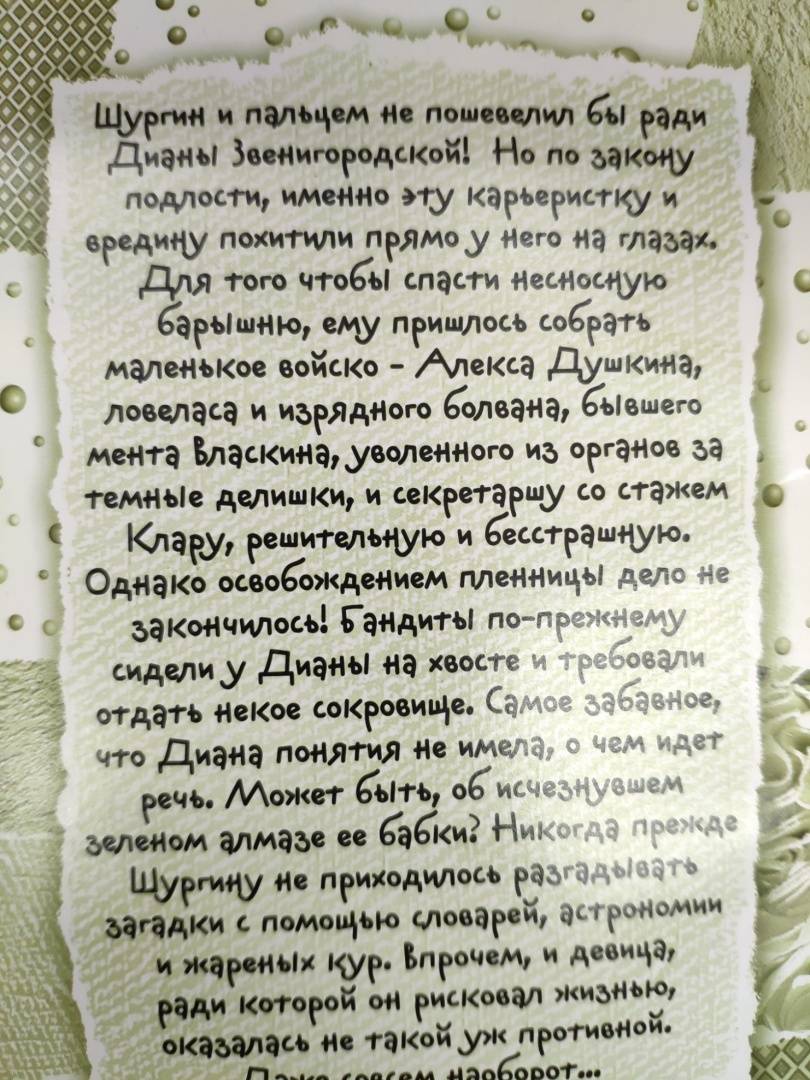 Шургин и пальцем не пошевелил бы ради
Дианы Звенигородской! Но по закону
подлости, именно эту карьеристку и
вредину похитили прямо у него на глазах.
Для того чтобы спасти несносную
барышню, ему пришлось собрать
маленькое войско - Алекса Душкина,
ловеласа и изрядного болвана, бывшего
мента Власкина, уволенного из органов за
темные делишки, и секретаршу со стажем
Клару, решительную и бесстрашную.
Однако освобождением пленницы дело не
закончилось! Бандиты по-прежнему
сидели у Дианы на хвосте и требовали
отдать некое сокровище. Самое забавное,
что Диана понятия не имела, о чем идет
речь. Может быть, об исчезнувшем
зеленом алмазе ее бабки? Никогда прежде
Шургину не приходилось разгадывать
загадки с помощью словарей, астрономии
и жареных кур. Впрочем, и девица,
ради которой он рисковал жизнью,
оказалась не такой уж противной.
Даже совсем наоборот...